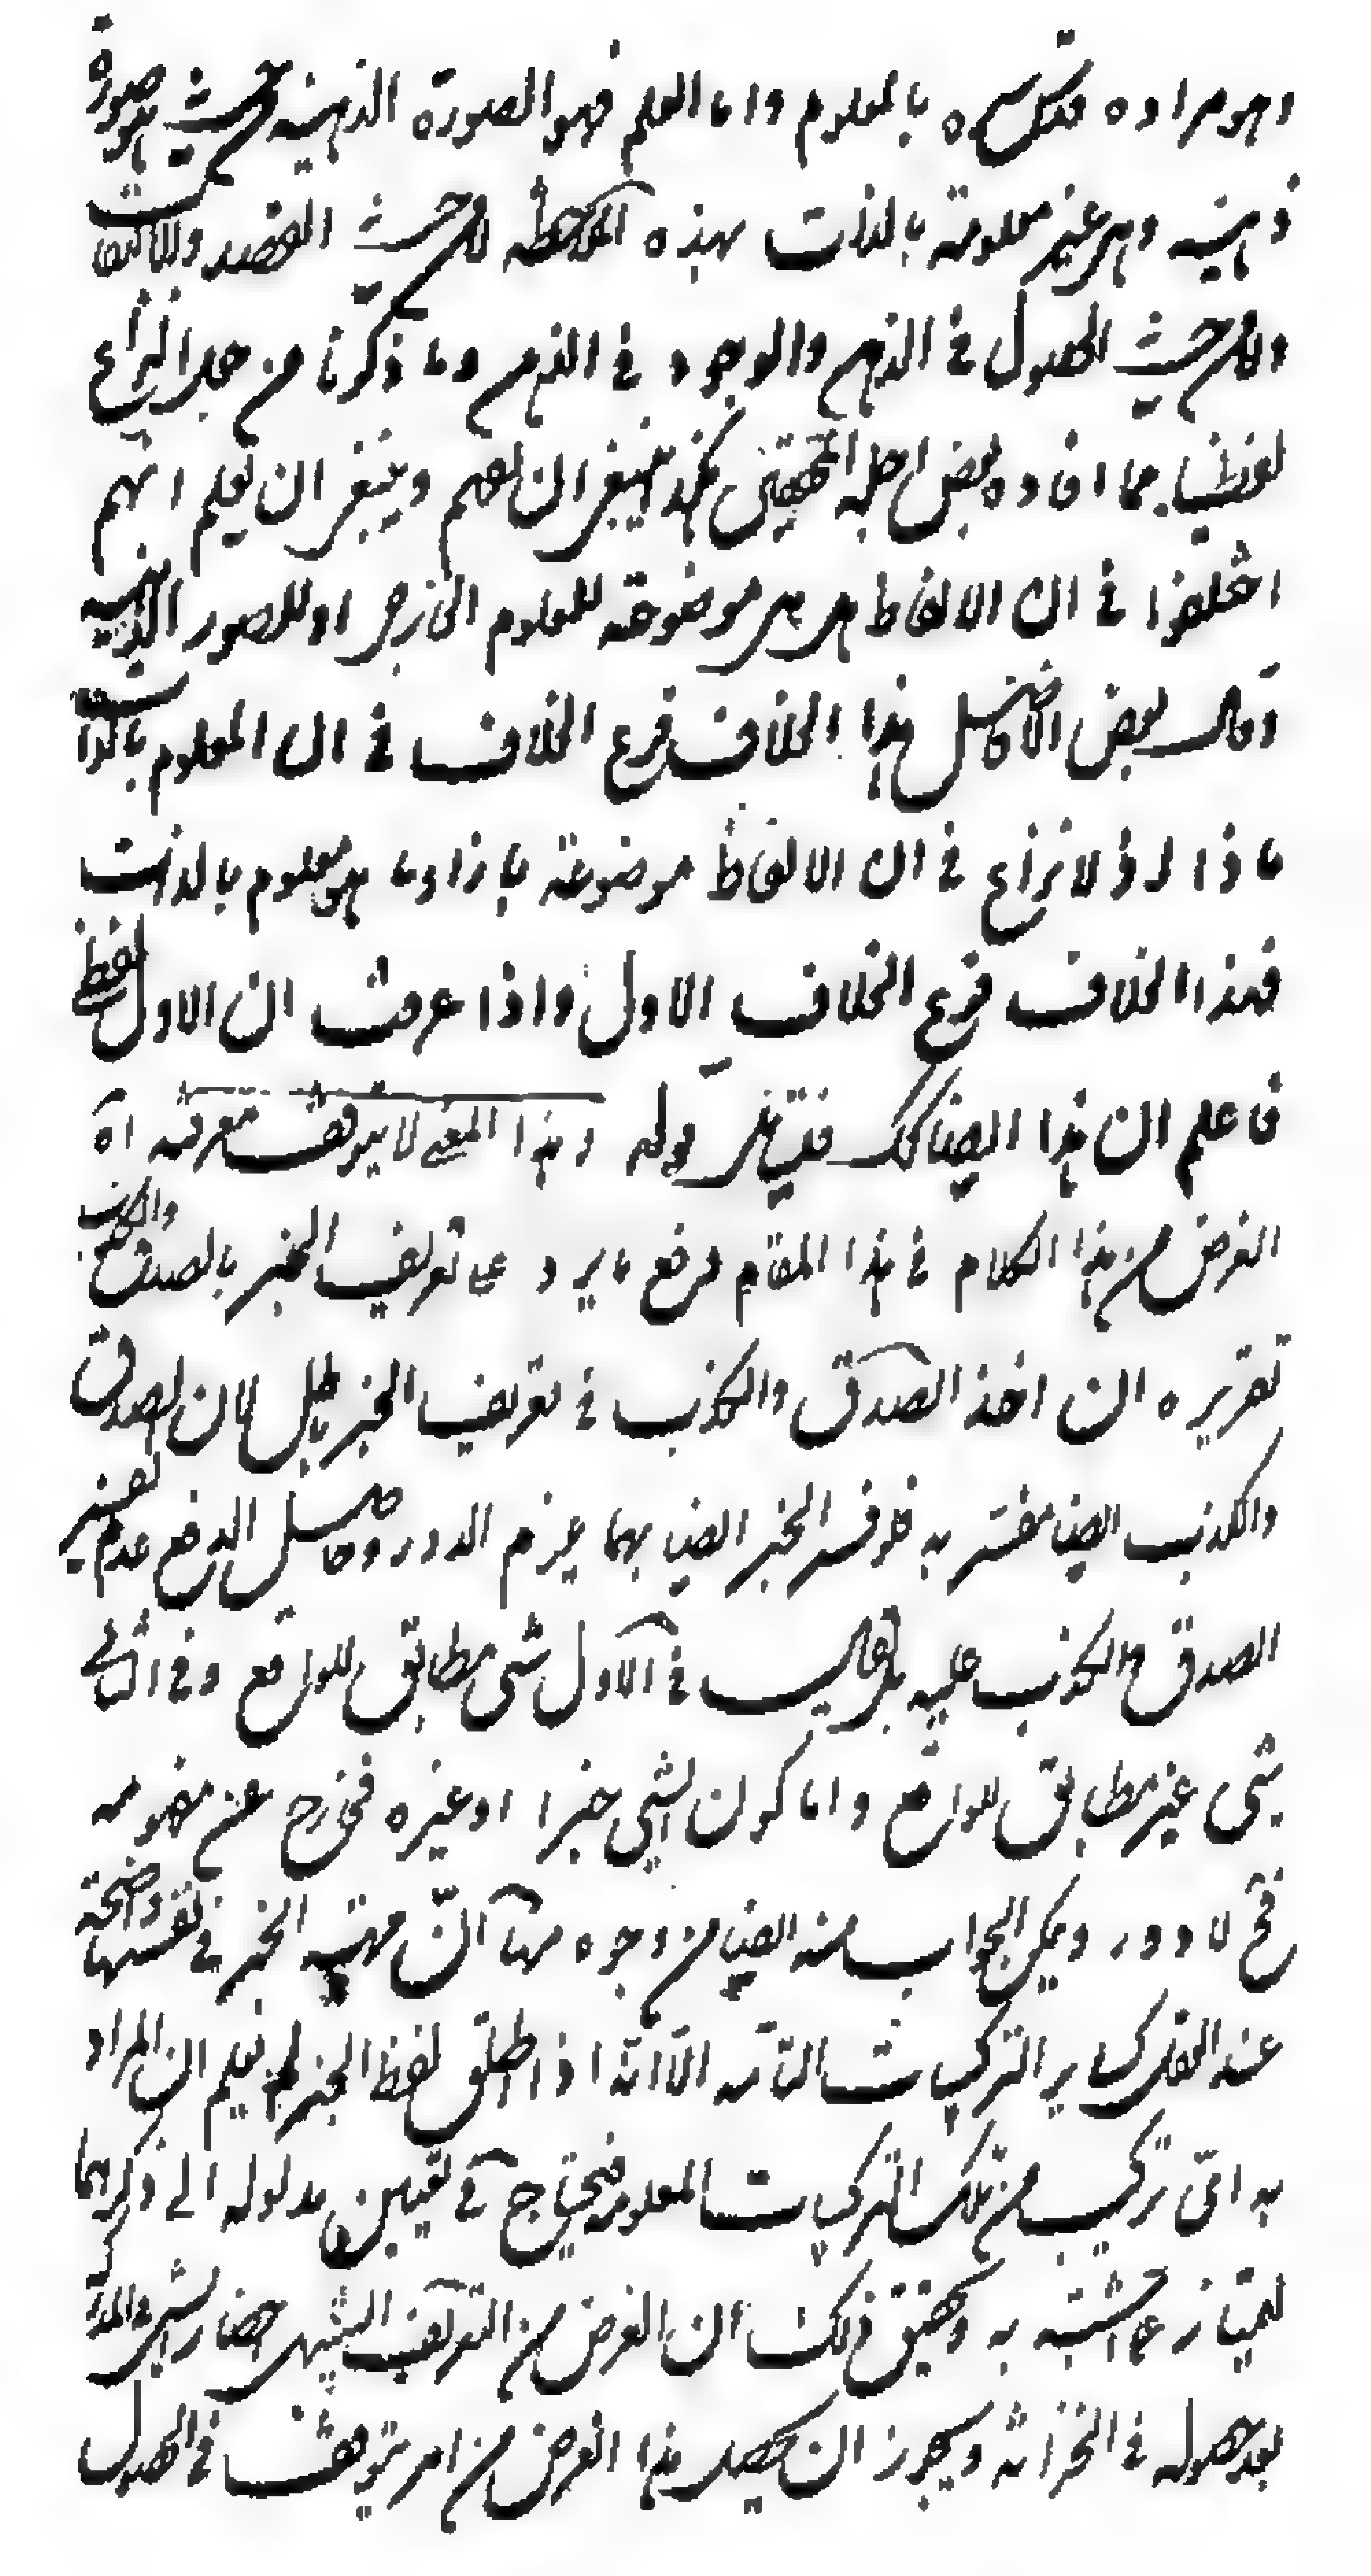 وهو مراده فتكلمه بالمعلوم واما العلم فهو الصورة الذهنية من حيث هو صورة
ذهنية وهي غير معلومة بالذات بهذه الملاحظة لا من حيث القصد والالتفات
ولا من حيث الحصول في الذهن والوجود في الذهن وما ذكرنا من جعل النزاع
لفظيا مما افاده بعض اجلة المحققين هكذا ينبغي ان يفهم وينبغي ان تعلم انهم
اختلفوا في ان الالفاظ هل هي موضوعة للمعلوم الخارجي او للصور الذهنية
وقال بعض الافاضل هذا الخلاف فرع الخلاف في ان المعلوم بالذات
ماذا اذ لا نزاع في ان الالفاظ موضوعة بازاء ما هو معلوم بالذات
فهذا الخلاف فرع الخلاف الاول واذا عرفت ان الاول لفظي
فاعلم ان هذا ايضا كك فتيقن قوله وهذا المعنى لا يتوقف معرفته آه
الغرض من هذا الكلام في هذا المقام دفع ما يرد على تعريف الخبر بالصدق والكذب
تقريره ان اخذ الصدق والكذب في تعريف الخبر باطل لان الصدق
والكذب ايضا مفسر به فلو فسر الخبر ايضا بهما يلزم الدور وحاصل الدفع عدم تفسير
الصدق والكذب عليه بل يقال في الاول شي مطابق للواقع وفي الثاني
شي غير مطابق للواقع واما كون الشي خبرا او غيره فخارج عن مفهومه
فح لا دور ويمكن الجواب عنه ايضا من وجوه منها ان مهية الخبر في نفسها واضحة
عند العقل كساير التركيبات التامة الا انه اذا اطلق لفظ الخبر لم يعلم ان المراد
به اي تركيب من تلك التركيبات المعلومة فيحتاج في تعيين مدلوله الى ذكرهما
ليمتاز عما اشتبه به وتحقيق ذلك ان الغرض من التعريف التنبيهي احضار شي والمدرك
بعد حصوله في الخزانة ويجوز ان يحصل هذا الغرض من امر يتوقف في الحصول